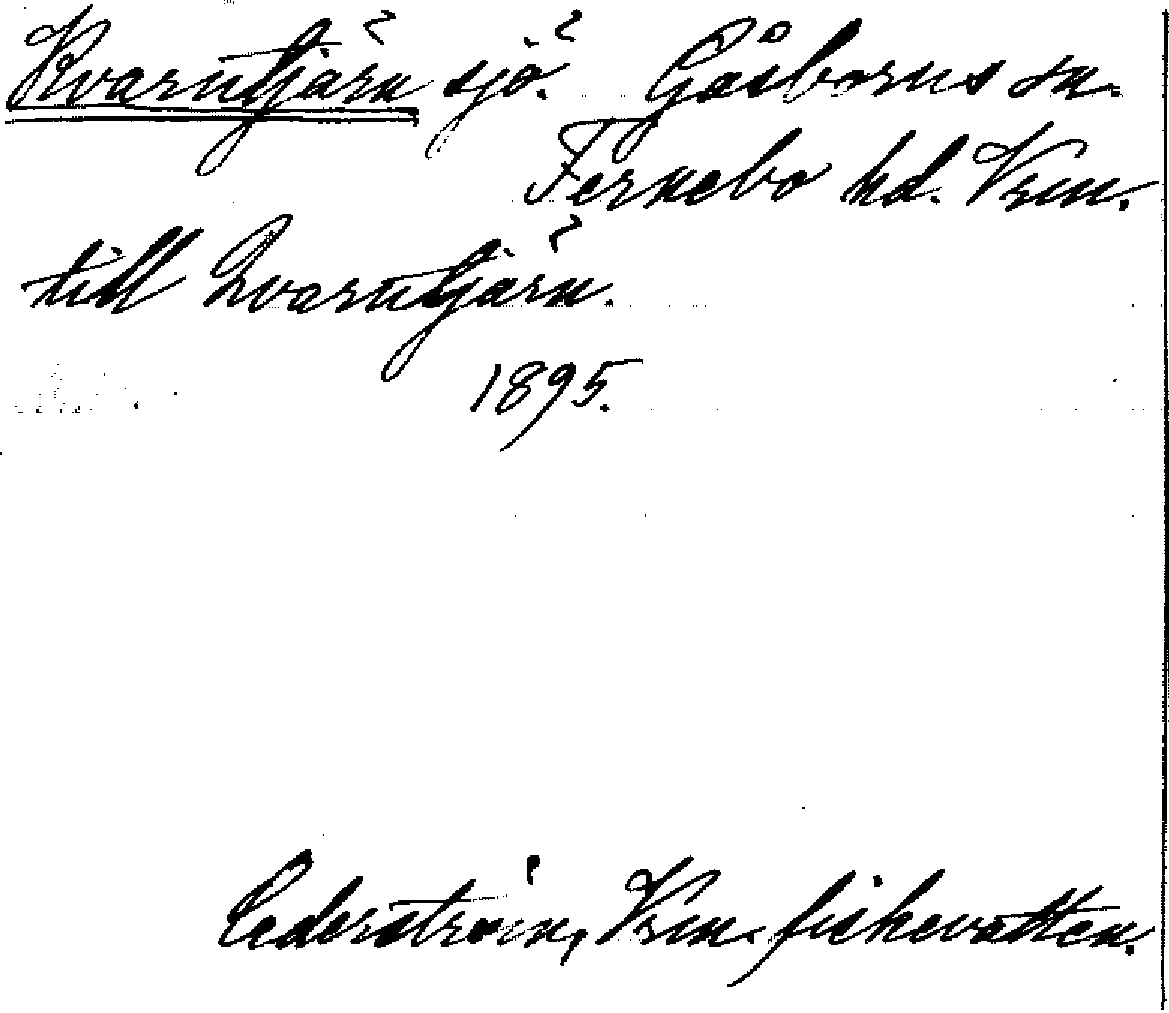 Kvarntjärn sjö. Gåsborns sn.
Fernebo hd. Vrm.
till Qvarntjärn.
1895.
Cederström, Vrm. fiskevatten.